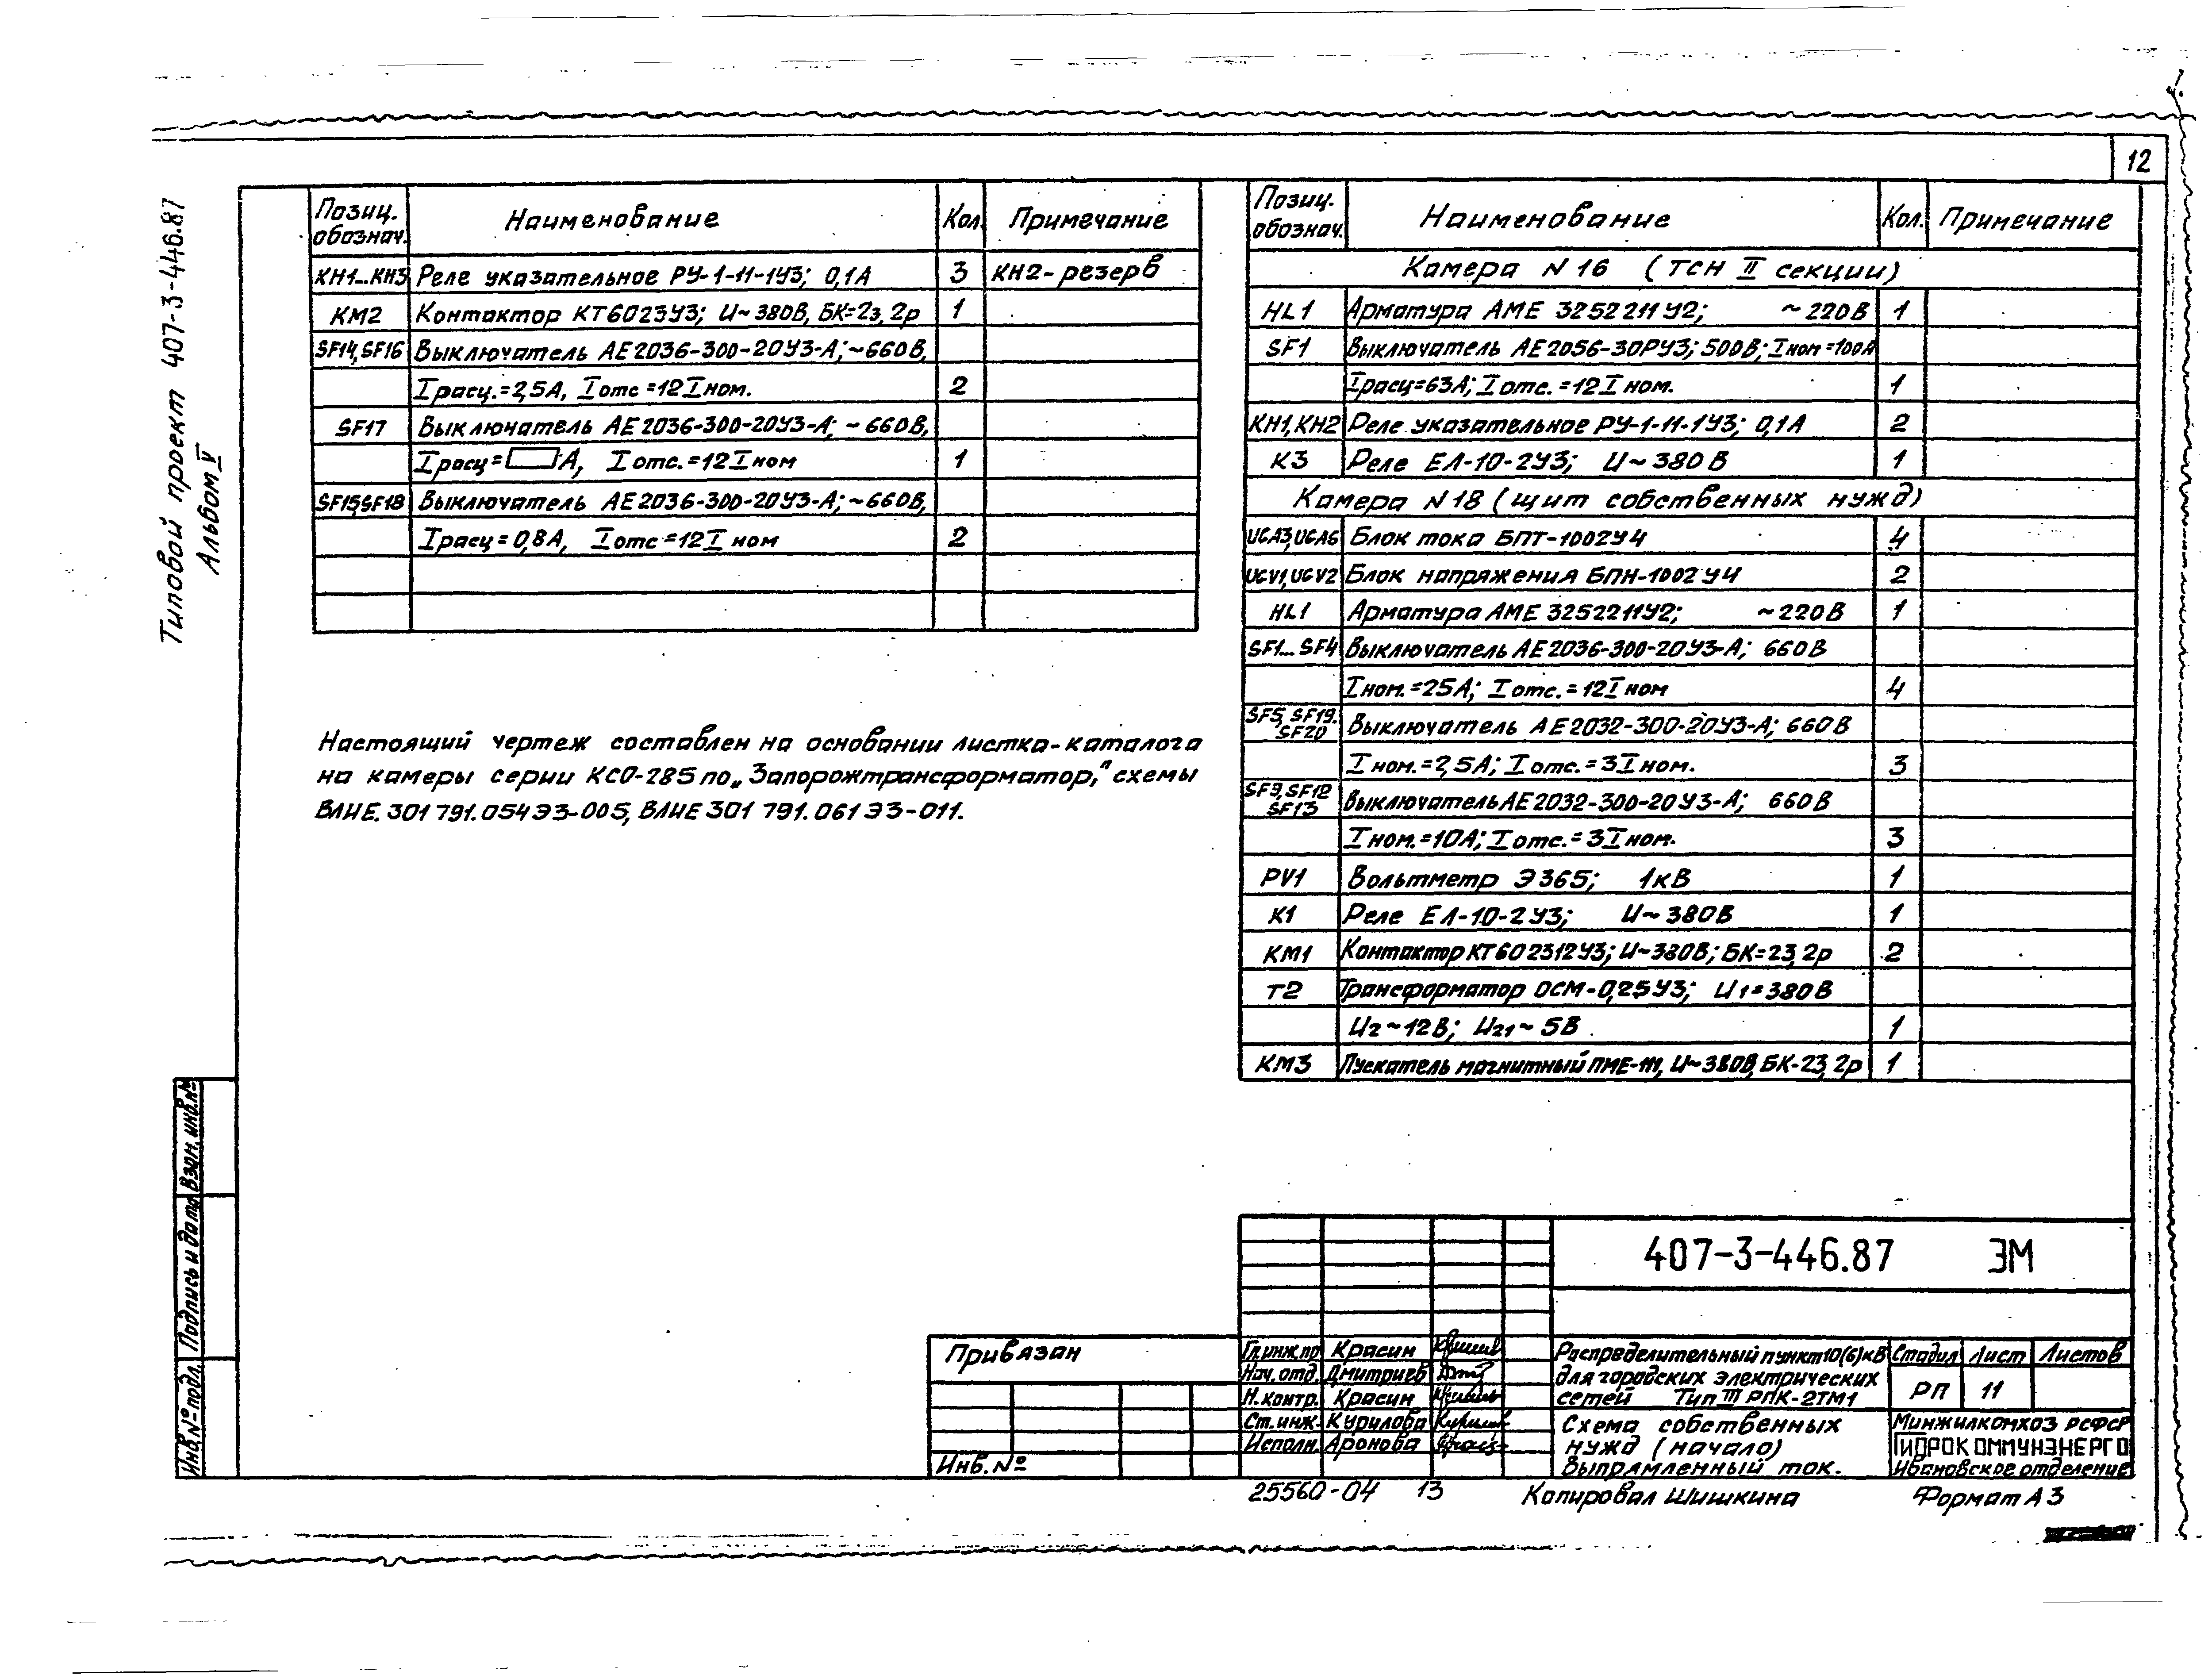 12
Типовой проект 407-3-446.87
Альбом V
Позиц. обознач. Наименование Кол. Примечание
КН1...КН3 Реле указательное РУ-1-11-1У3; 0,1А 3 КН2-резерв
КМ2 Контактор КТ6023У3; U~380В, БК=2з, 2р 1
SF14, SF16 Выключатель АЕ2036-300-20У3-А; ~660В,
Iрасц.=2,5А, Iотс=12Iном. 2
SF17 Выключатель АЕ2036-300-20У3-А; ~660В,
Iрасц=□А, Iотс.=12Iном 1
SF15, SF18 Выключатель АЕ2036-300-20У3-А; ~660В,
Iрасц=0,8А, Iотс=12Iном 2
Настоящий чертеж составлен на основании листка-каталога
на камеры серии КСО-285 по „Запорожтрансформатор,” схемы
ВЛИЕ.301791.054Э3-005, ВЛИЕ 301 791.061 Э3-011.
Позиц. обознач. Наименование Кол. Примечание
Камера N16 (ТСН II секции)
HL1 Арматура АМЕ 325221 1У2; ~220В 1
SF1 Выключатель АЕ2056-30РУ3; 500В; Iном=100А
Iрасц=63А; Iотс.=12Iном. 1
КН1, КН2 Реле указательное РУ-1-11-1У3; 0,1А 2
К3 Реле ЕЛ-10-2У3; U~380В 1
Камера N18 (щит собственных нужд)
UGA3, UGA6 Блок тока БПТ-1002У4 4
UGV1, UGV2 Блок напряжения БПН-1002У4 2
HL1 Арматура АМЕ 325221 1У2; ~220В 1
SF1...SF4 Выключатель АЕ2036-300-20У3-А; 660В
Iном.=25А; Iотс.=12Iном 4
SF5, SF19. SF20 Выключатель АЕ2032-300-20У3-А; 660В
Iном.=2,5А; Iотс.=3Iном. 3
SF9, SF12 SF13 Выключатель АЕ2032-300-20У3-А; 660В
Iном.=10А; Iотс.=3Iном. 3
PV1 Вольтметр Э365; 1кВ 1
К1 Реле ЕЛ-10-2У3; U~380В 1
КМ1 Контактор КТ602312У3; U~380В; БК=2з, 2р 2
Т2 Трансформатор ОСМ-0,25У3; U1=380В
U2~12В; U21~5В 1
КМ3 Пускатель магнитный ПМЕ-111, U~380В, БК-2з, 2р 1
Взам. инв.№
Подпись и дата
Инв.№ подл.
407-3-446.87 ЭМ
Привязан
Инв.№
Гл.инж.пр Красин
Нач.отд. Дмитриев
Н.контр. Красин
Ст.инж. Курилова
Исполн. Аронова
Распределительный пункт 10(6)кВ
для городских электрических
сетей Тип III РПК-2ТМ1
Стадия Лист Листов
РП 11
Схема собственных
нужд (начало)
Выпрямленный ток.
Минжилкомхоз РСФСР
ГИПРОКОММУНЭНЕРГО
Ивановское отделение
25560-04 13 Копировал Шишкина Формат А3